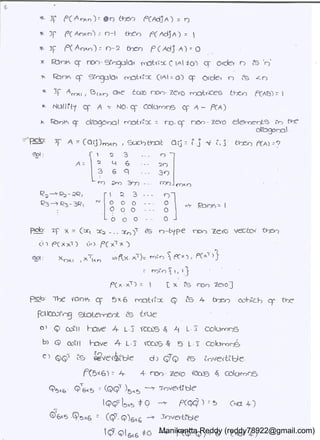 * If P(An×n) = n then P(AdjA) = n
* If P(An×n) = n-1 then P(AdjA) = 1
* If P(An×n) = n-2 then P(AdjA) = 0
* Rank of non-singular matrix (|A|≠0) of order n is 'n'
* Rank of singular matrix (|A|=0) of order n is <n
* If An×1, B1×n are two non-zero matrices then P(AB) = 1
* Nullity of A = NO. of columns of A - P(A)
* Rank of diagonal matrix = no. of non-zero elements in the diagonal.
Prob: If A = (aij)m×n, such that aij = i.j ∀ i,j then P(A) = ?
Sol: A = [1 2 3 ... n
2 4 6 ... 2n
3 6 9 ... 3n
m 2m 3m ... mn]m×n
R2→R2-2R1
R3→R3-3R1
~ [1 2 3 ... n
0 0 0 ... 0
0 0 0 ... 0
0 0 0 ... 0] ⇒ Rank = 1
Prob: If x = (x1 x2 ... xn)T is n-type non zero vector then
(i) P(x xT) (ii) P(xT x)
Sol: Xn×1, XT1×n P(x xT) = min{P(x), P(xT)}
= min{1, 1}
P(x xT) = 1 [x is non zero]
Prob: The rank of 5×6 matrix Q is 4 then which of the
following statement is true
a) Q will have 4 L.I rows & 4 L.I columns
b) Q will have 4 L.I rows & 5 L.I columns
c) QQT is invertible d) QTQ is invertible
P(5×6) = 4 4 non-zero rows & columns
Q5×6 QT6×5 = (QQT)5×5 → Invertible
|QQT|5×5 ≠ 0 → P(QQT) = 5
QT6×5 Q5×6 = (QTQ)6×6 → Invertible
|QTQ|6×6 ≠ 0
Manikantta Reddy (reddy78922@gmail.com)